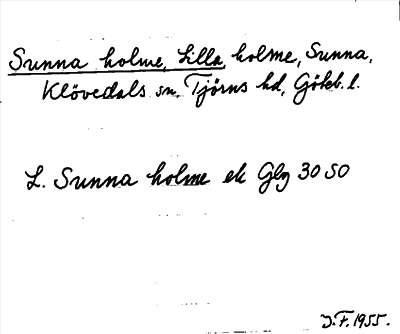 Sunna holme, Lilla, holme, Sunna,
Klövedals sn, Tjörns hd, Göteb. l.
L. Sunna holme ek Glg 30 SO
J.F. 1955.